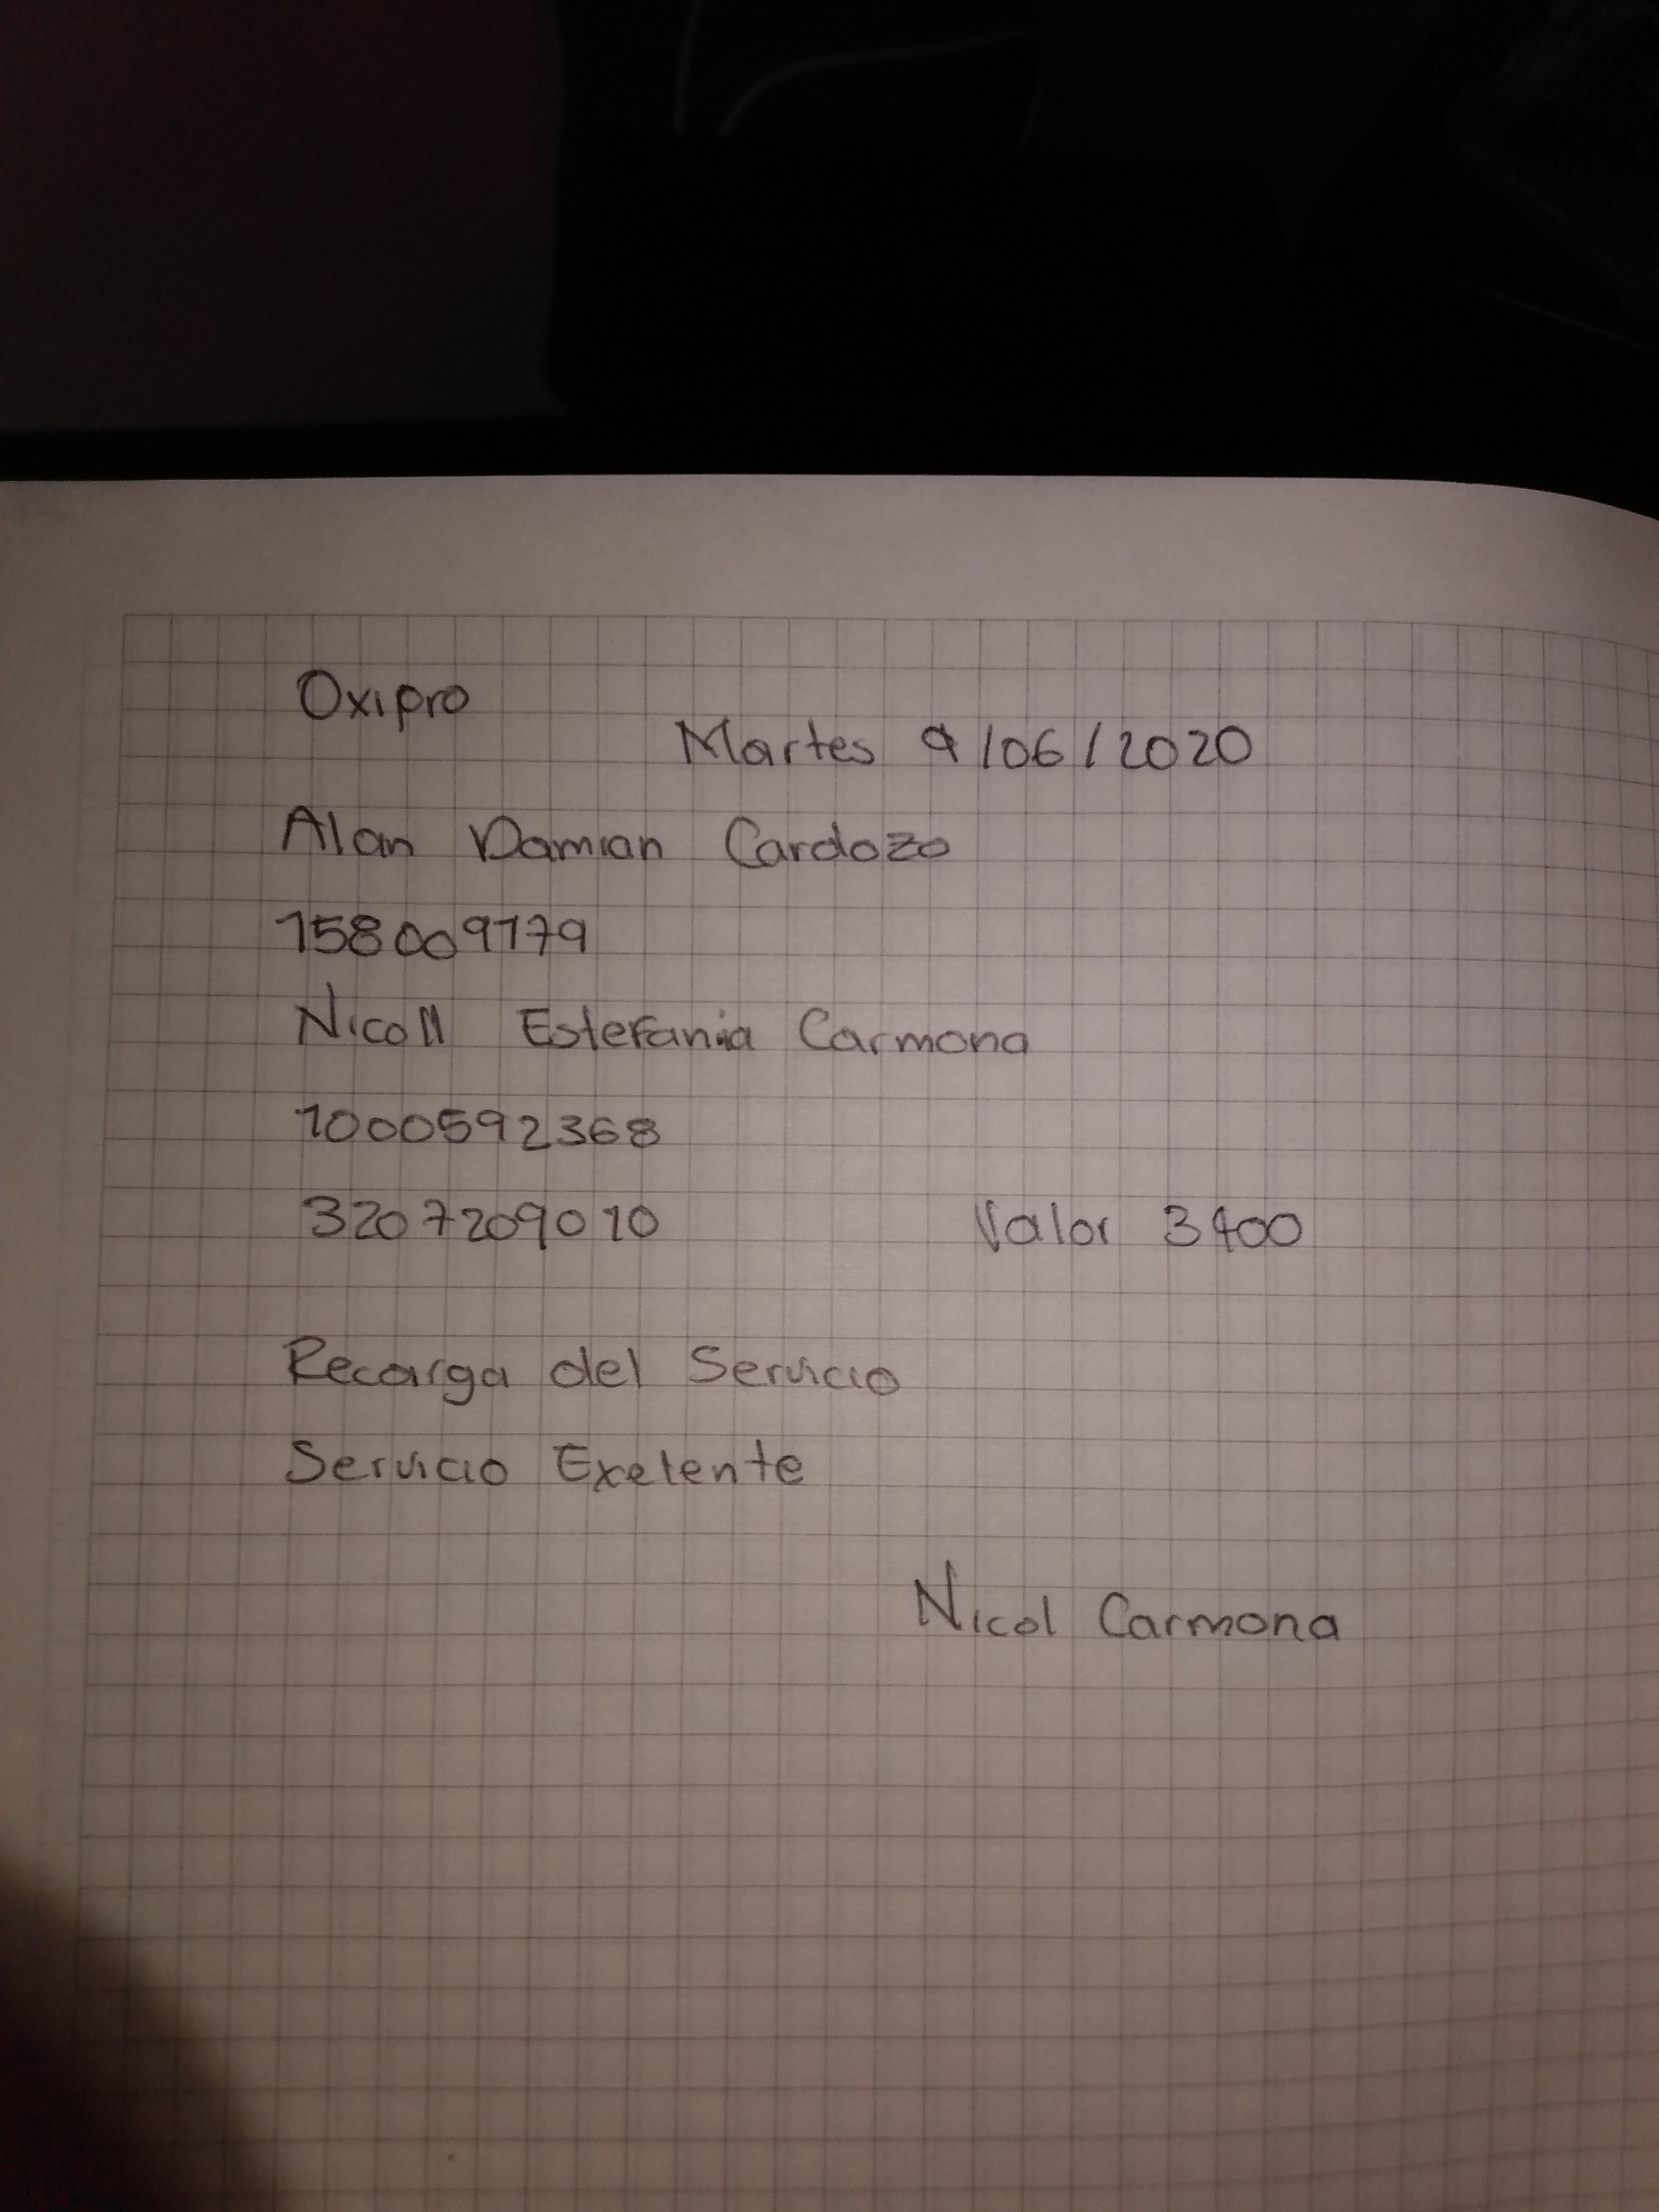 Oxipro
Martes 9/06/2020
Alan Damian Cardozo
158009179
Nicoll Estefania Carmona
1000592368
3207209010 Valor 3400
Recarga del Servicio
Servicio Exelente
Nicol Carmona